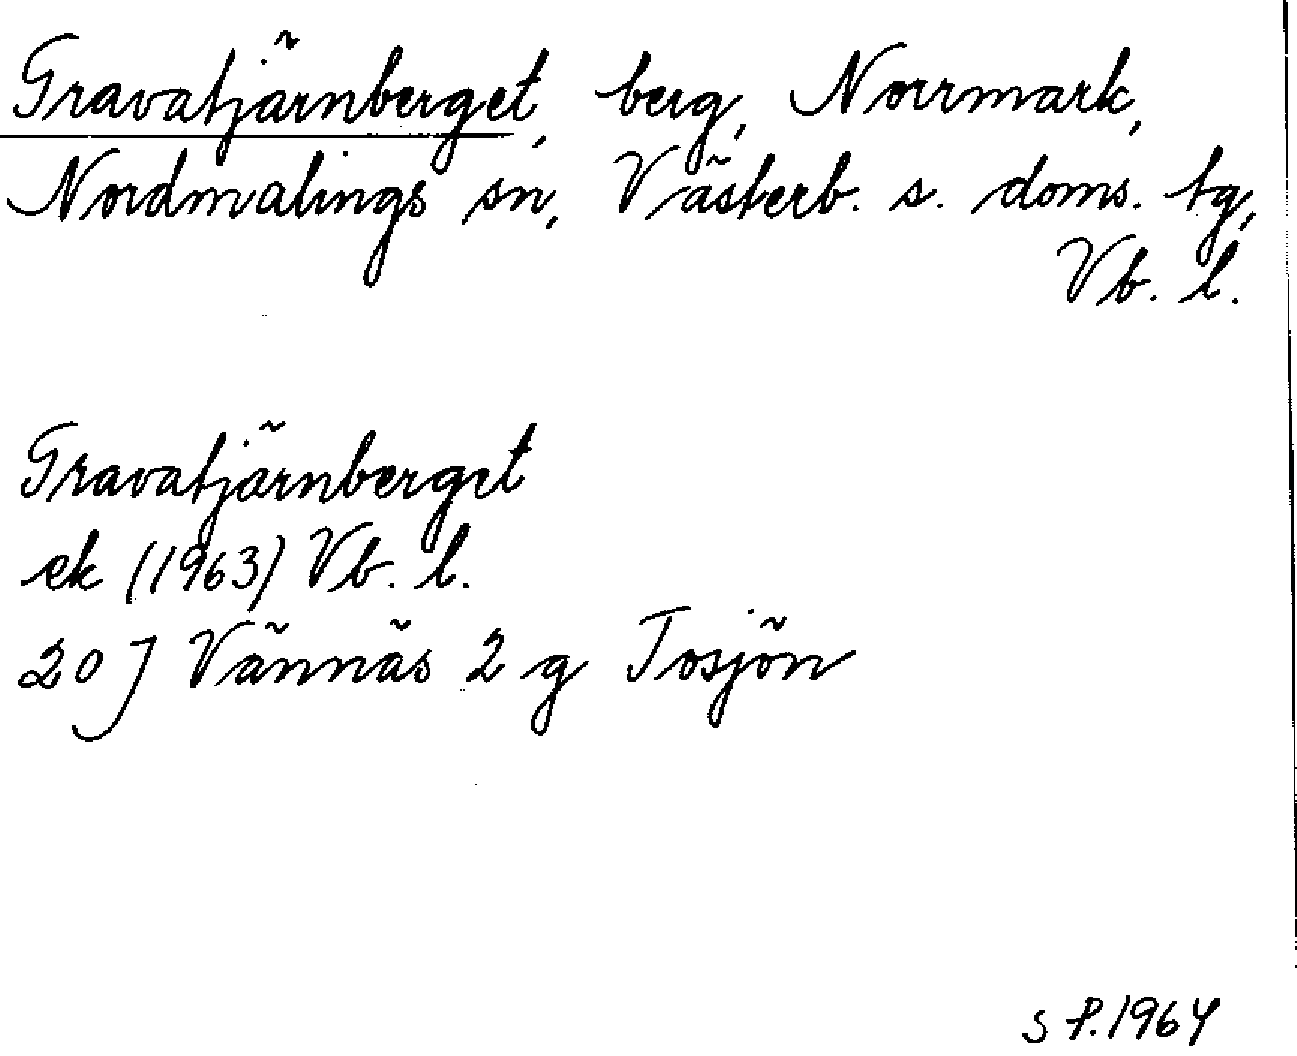 Gravatjärnberget, berg, Norrmark,
Nordmalings sn, Västerb. s. doms. tg,
Vb. l.
Gravatjärnberget
ek (1963) Vb. l.
20 J Vännäs 2 g Tosjön
S P. 1964